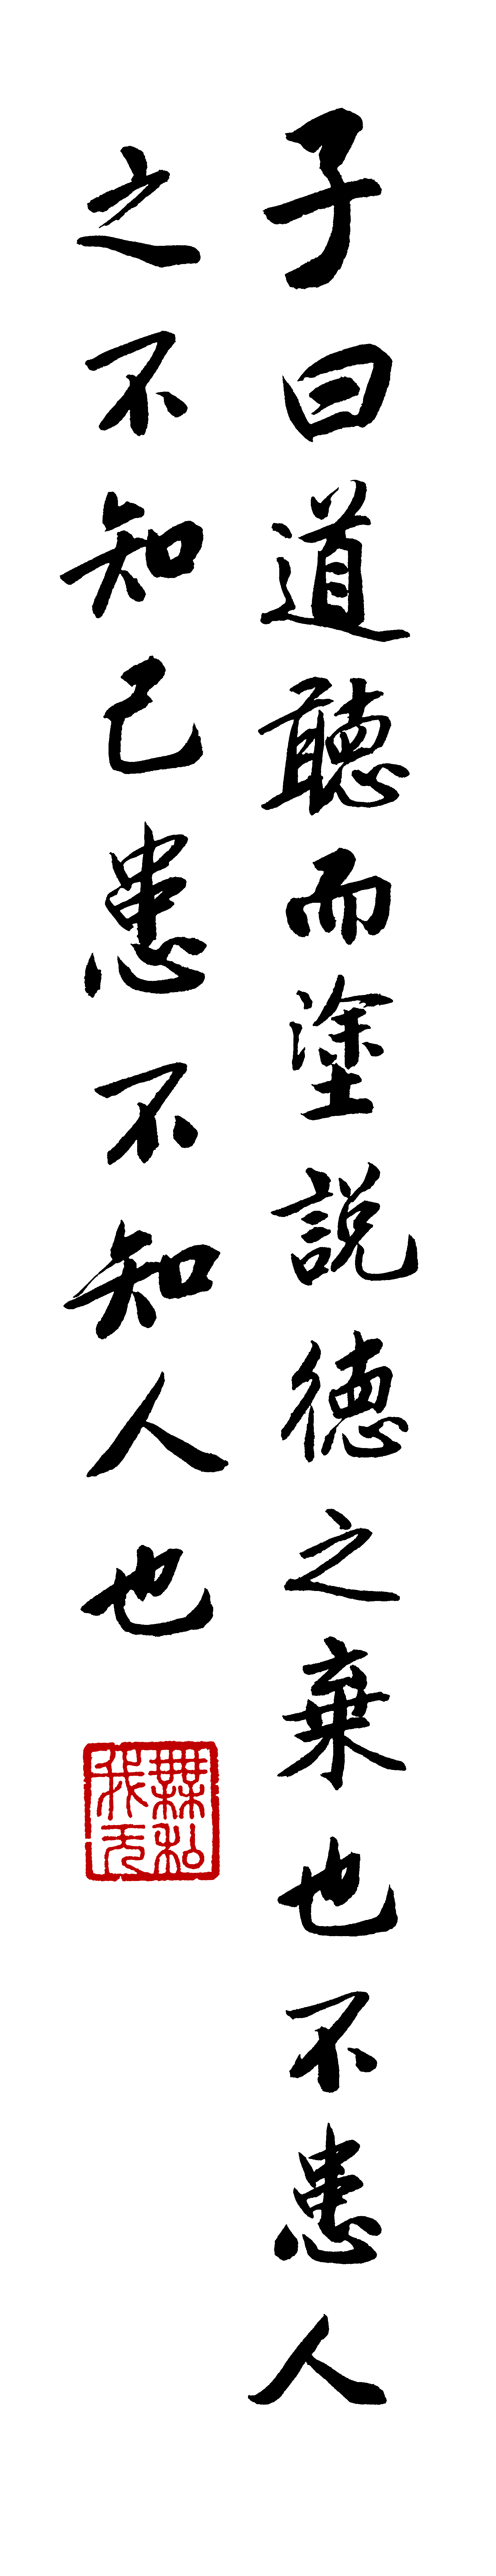 子曰道聽而塗説德之棄也不患人
之不知己患不知人也
無私
我天